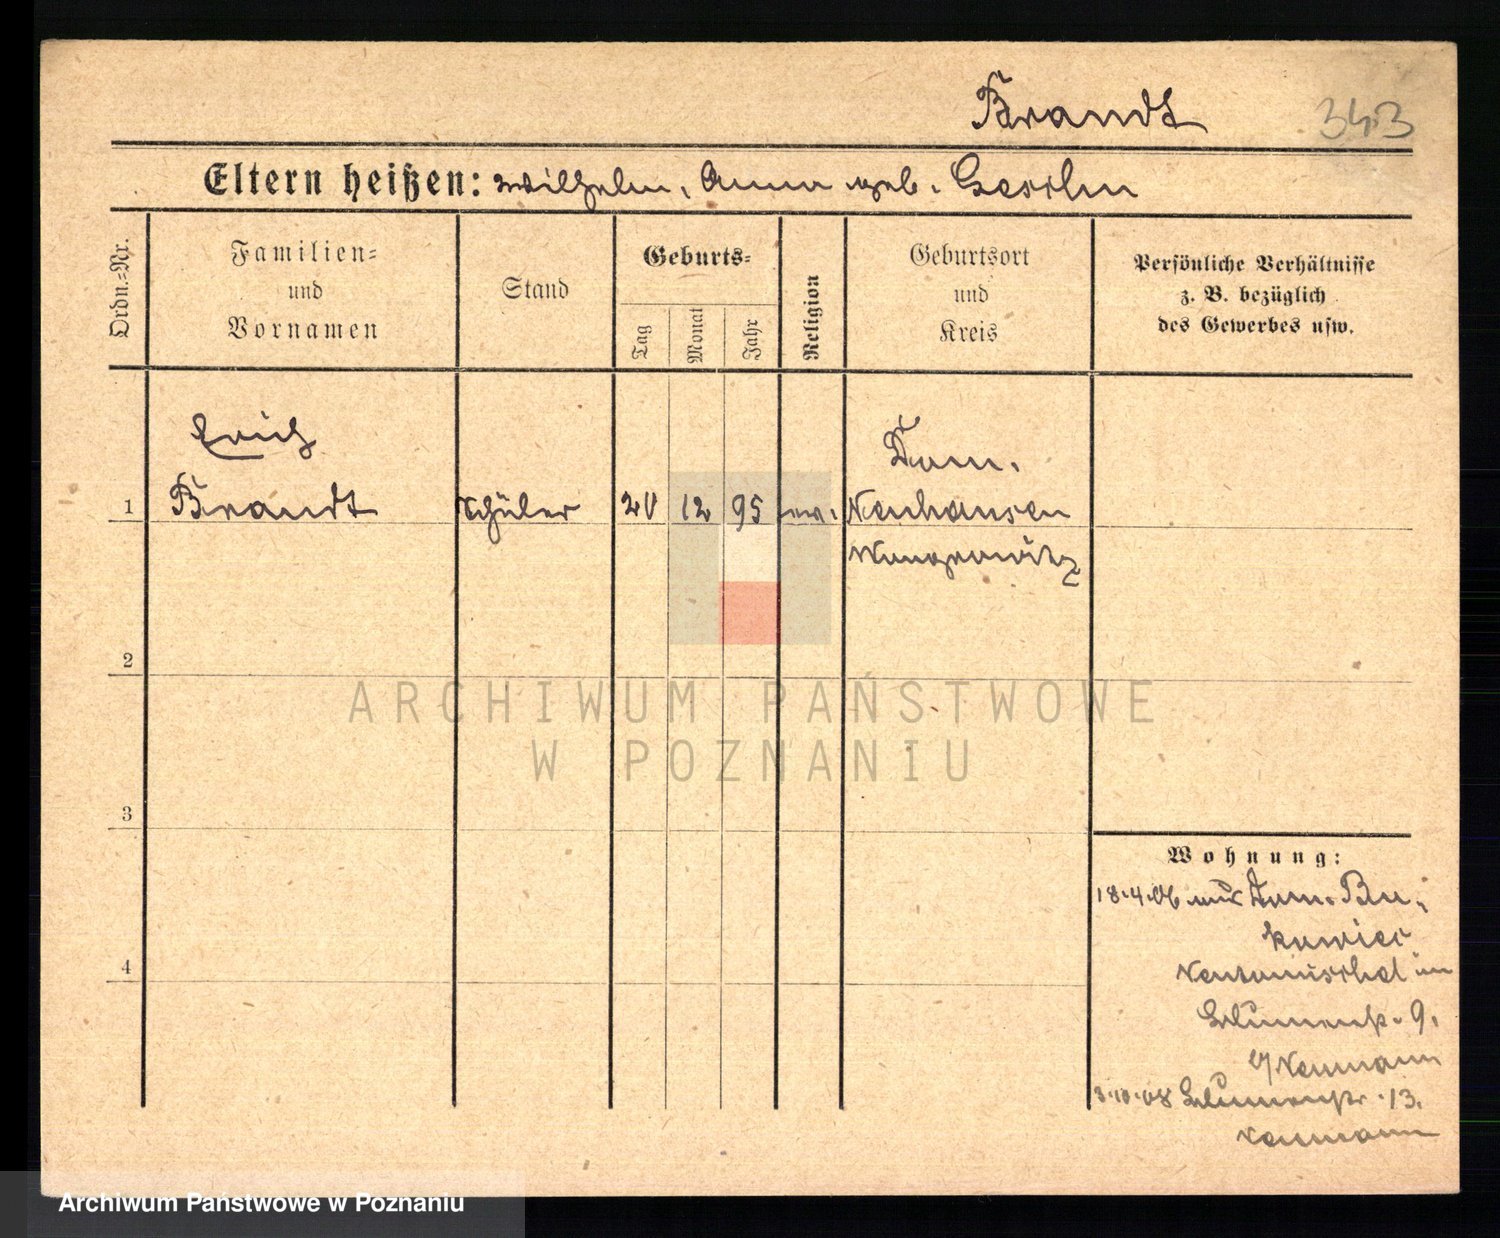 Brandt 343
Eltern heißen: Wilhelm, Anna geb.
Ordn.-Nr.
Familien-
und
Vornamen
Stand
Geburts-
Tag
Monat
Jahr
Religion
Geburtsort
und
Kreis
Persönliche Verhältnisse
z. B. bezüglich
des Gewerbes usw.
Erich
Dom.
1 Brandt Schüler 20 12 95 ev. Neuhausen
Wongrowitz
2
ARCHIWUM PAŃSTWOWE
W POZNANIU
3
Wohnung:
18.4.06 aus Dom. Bu-
kowiec
im
Blumenstr. 9.
b/ Neumann
3.10.08 Blumenstr. 13.
Neumann
4
Archiwum Państwowe w Poznaniu